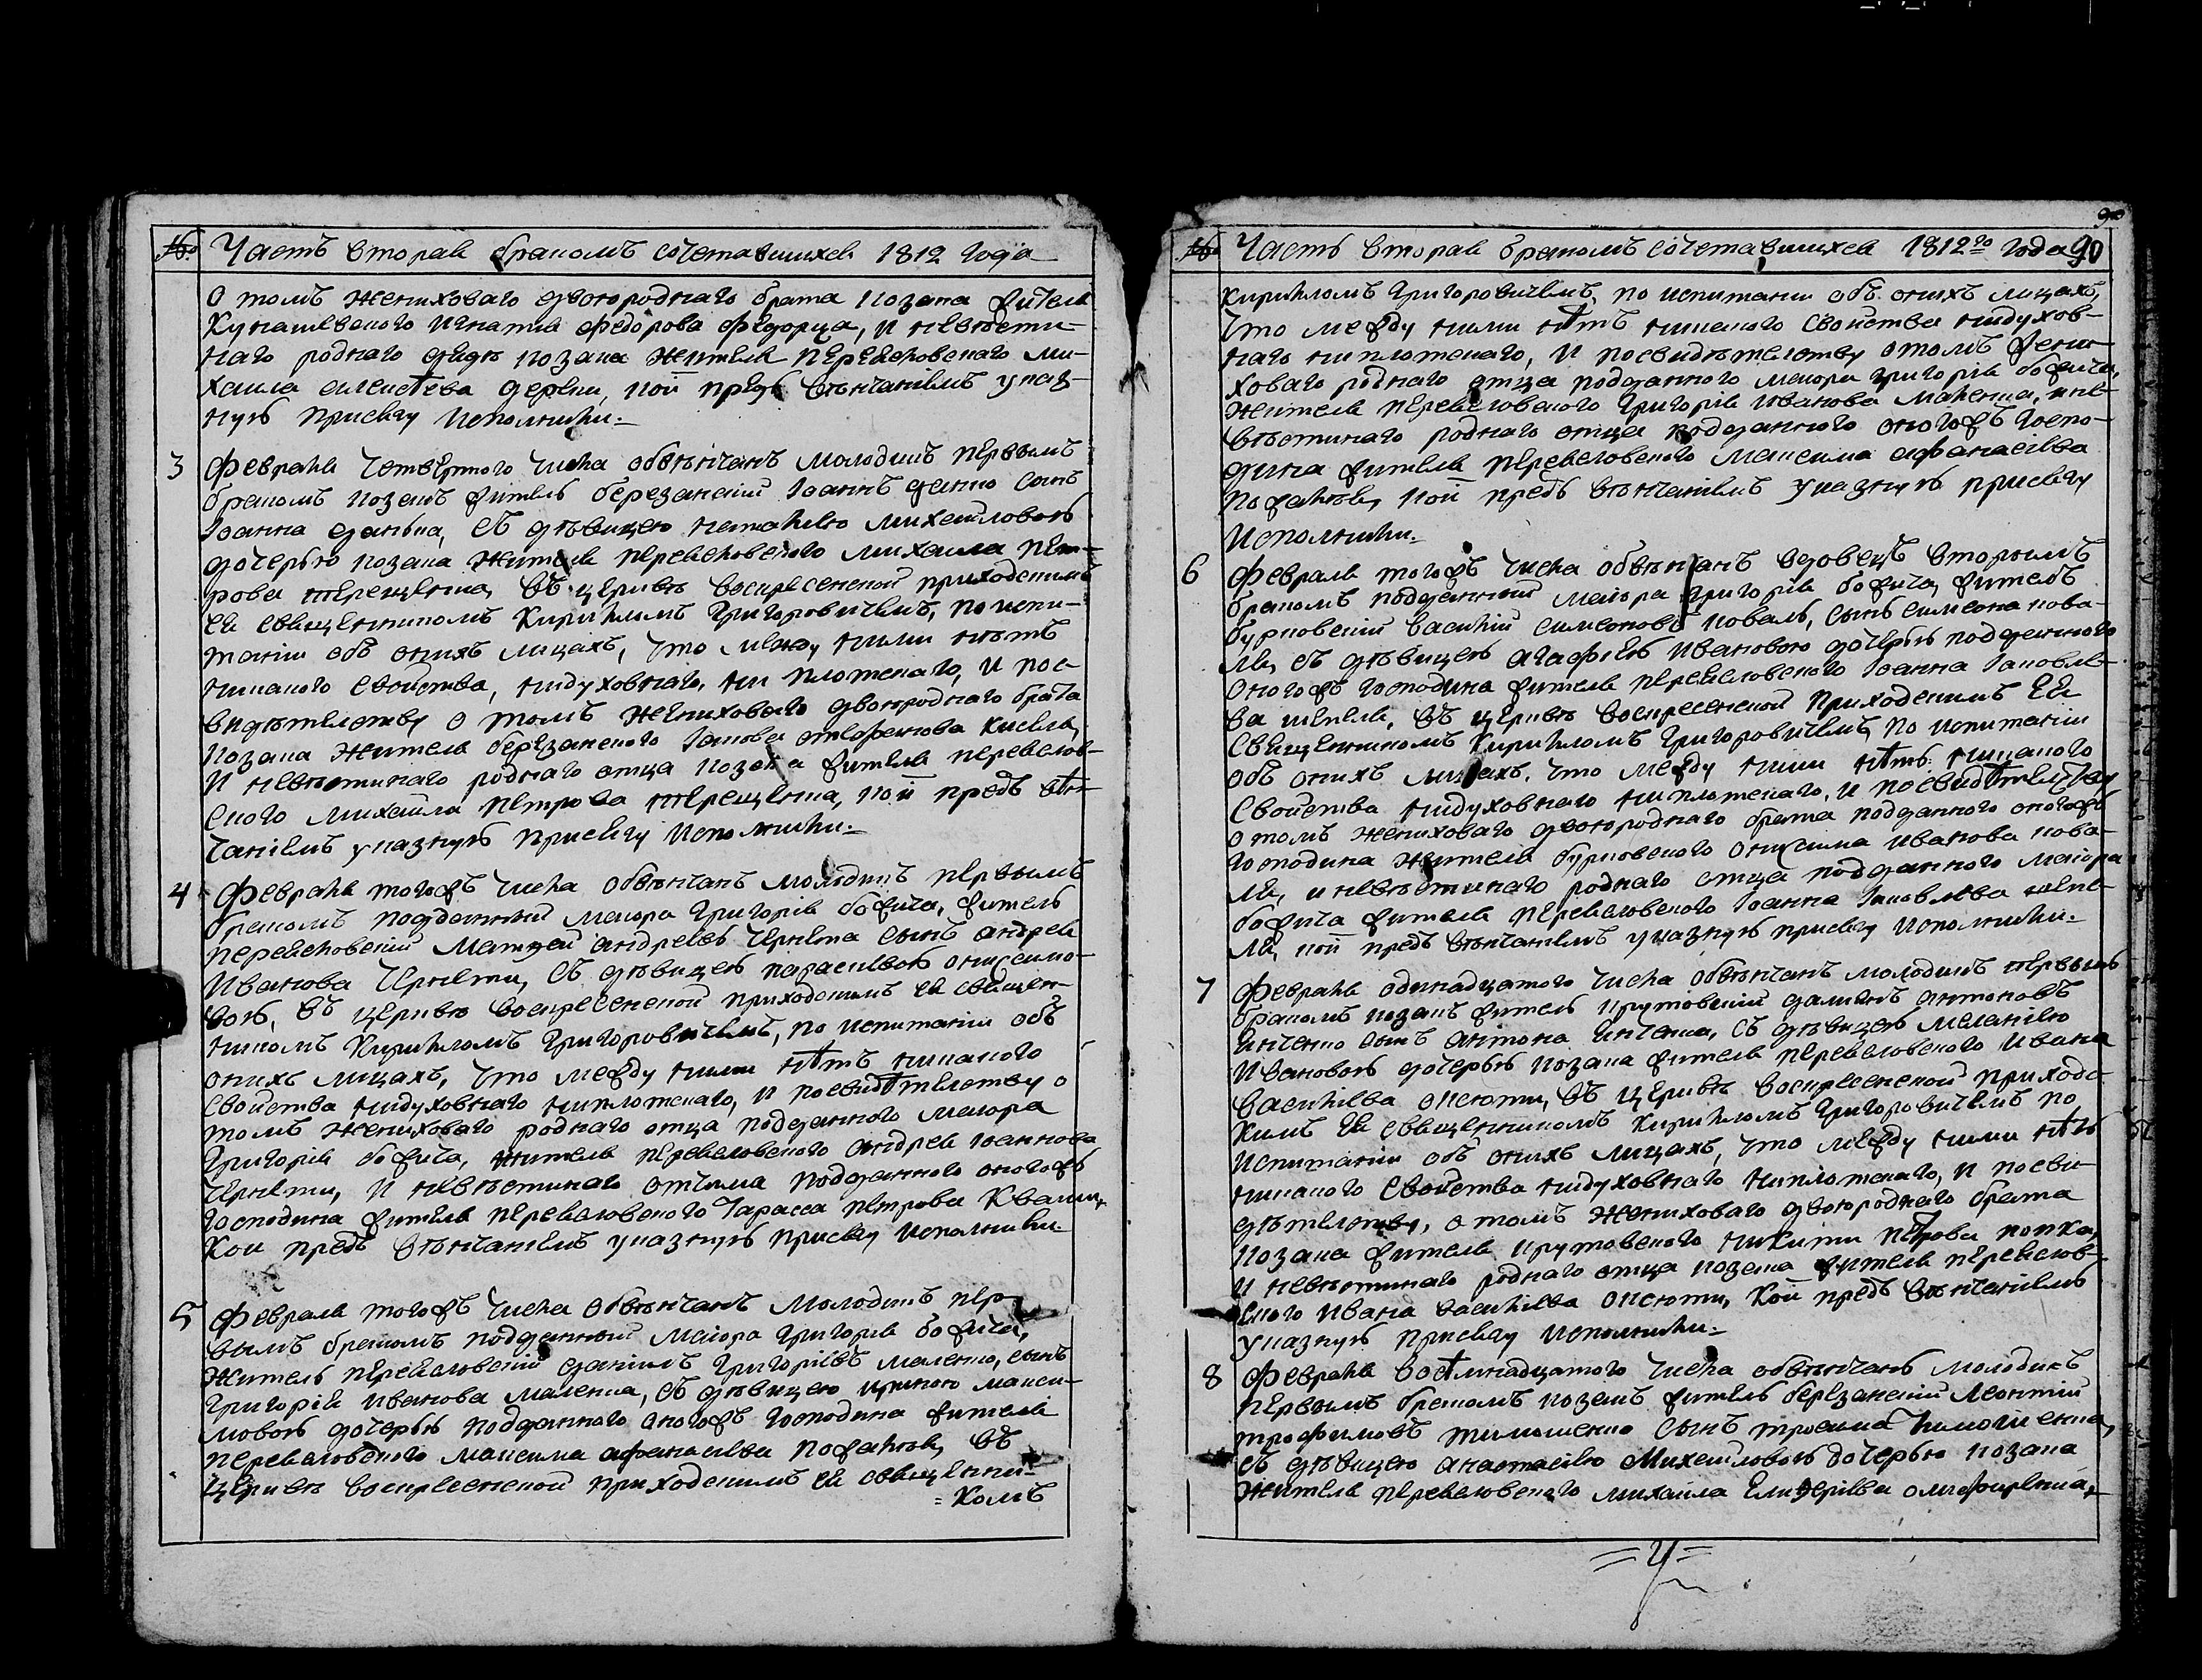 № Часть вторая бракомъ сочетавшихся 1812 года
О томъ жениховаго двоюроднаго брата козака жителя
Кулашевского Игнатия Федорова Федорца, и невѣсти-
наго роднаго дядѣ козака жителя переясловского ми-
хаила алексѣева деркы, кои предъ вѣнчаніемъ указ-
ную присягу исполнили.
3 Февраля четвертого числа обвѣнчанъ молодикъ первымъ
бракомъ козакъ житель березанскій Іоаннъ данко сынъ
Іоанна данька, съ дѣвицею наталіею михайловою
дочерью козака жителя переясловского михаила пет-
рова терещенка, въ церквѣ воскресенской приходскимъ
ея священникомъ Кирилломъ Григоровичемъ, по испи-
танію объ онихъ лицахъ, что между ними нѣтъ
никакого свойства, нидуховнаго, ни плотскаго, и пос-
видѣтелству о томъ жениховаго двоюроднаго брата
козака жителя березанского Іакова стефанова киселя,
и невѣстинаго роднаго отца козака жителя переяслов-
ского михаила петрова терещенка, кои предъ вѣн-
чаніемъ указную присягу исполнили.
4 Февраля тогожъ числа обвѣнчанъ молодикъ первымъ
бракомъ подданный маиора григорія божича, житель
переясловский матвей андреевъ черněта сынъ андрея
Иванова чернети, съ дѣвицею параскѣвою онисимо-
вою, въ церквѣ воскресенской приходскимъ ея священ-
никомъ Кирилломъ Григоровичемъ, по испитанію объ
онихъ лицахъ, что между ними нѣтъ никакого
свойства нидуховнаго ниплотскаго, и посвидѣтелству о
томъ жениховаго роднаго отца подданного маиора
Григорія божича, жителя переясловского андрея Іоаннова
чернети, и невѣстинаго отчима подданного оногожъ
господина жителя переясловского Тарасса петрова Кваши,
Кои предъ вѣнчаніемъ указную присягу исполнили
5 Февраля тогожъ числа обвѣнчанъ молодикъ пер-
вымъ бракомъ подданный маиора Григорія божича,
житель переясловскій даніилъ григоріевъ маленко, сынъ
григорія иванова маленка, съ дѣвицею ириною макси-
мовою дочерью подданного оногожъ господина жителя
переясловского максима афанасиева въ
церквѣ воскресенской приходскимъ ея священни-
=комъ
90
№ Часть вторая бракомъ сочетавшихся 1812го года 90
кирилломъ григоровичемъ, по испитанію объ онихъ лицахъ,
что между ними нѣтъ никакого свойства нидухов-
наго ниплотскаго, и посвидѣтелству отомъ жени-
ховаго роднаго отца подданного маиора григорія божича,
жителя переясловского григорія иванова маленка, и не-
вѣстинаго роднаго отца подданного оногожъ госпо-
дина жителя переясловского максима афанасіева
кои предъ вѣнчаніемъ указную присягу
исполнили.
6 Февраля тогожъ числа обвѣнчанъ вдовецъ вторымъ
бракомъ подданный маиора григорія божича, житель
бурковскій василій симеоновъ коваль, сынъ симеона кова-
ля, съ дѣвицею агафиею ивановою дочерью подданного
оногожъ господина жителя переясловского Іоанна Іаковле-
ва шекеля, въ церквѣ воскресенской приходскимъ ея
священникомъ Кирилломъ григоровичемъ, по испитанію
объ онихъ лицахъ, что между ними нѣтъ никакого
свойства нидуховнаго ниплотскаго, и посвидѣтелству
отомъ жениховаго двоюроднаго брата подданного оногожъ
господина жителя бурковского онисима иванова кова-
ля, и невѣстинаго роднаго отца подданного маиора
божича жителя переясловского Іоанна Іаковлева шеке-
ля, кои предъ вѣнчаніемъ указную присягу исполнили.
7 Февраля одинадцатого числа обвѣнчанъ молодикъ первымъ
бракомъ козакъ житель крутовскій даміянъ антоновъ
инченко сынъ антона инченка, съ дѣвицею меланіею
Ивановою дочерью козака жителя переясловского ивана
василіева оксюти, въ церквѣ воскресенской приходс-
кимъ ея священникомъ Кирилломъ Григоровичемъ по
испитанію объ онихъ лицахъ, что между ними нѣтъ
никакого свойства нидуховнаго ниплотскаго, и посви-
дѣтелству, о томъ жениховаго двоюроднаго брата
козака жителя крутовского никити петрова попка,
и невѣстинаго роднаго отца козака жителя переяслов-
ского ивана василіева оксюти, кои предъ вѣнчаніемъ
указную присягу исполнили.
8 Февраля восѣмнадцатого числа обвѣнчанъ молодикъ
первымъ бракомъ козакъ житель березанскій леонтий
трофимовъ тимошенко сынъ трофима тимошенка,
съ дѣвицею анастасіею михайловою дочерью козака
жителя переясловского михаила